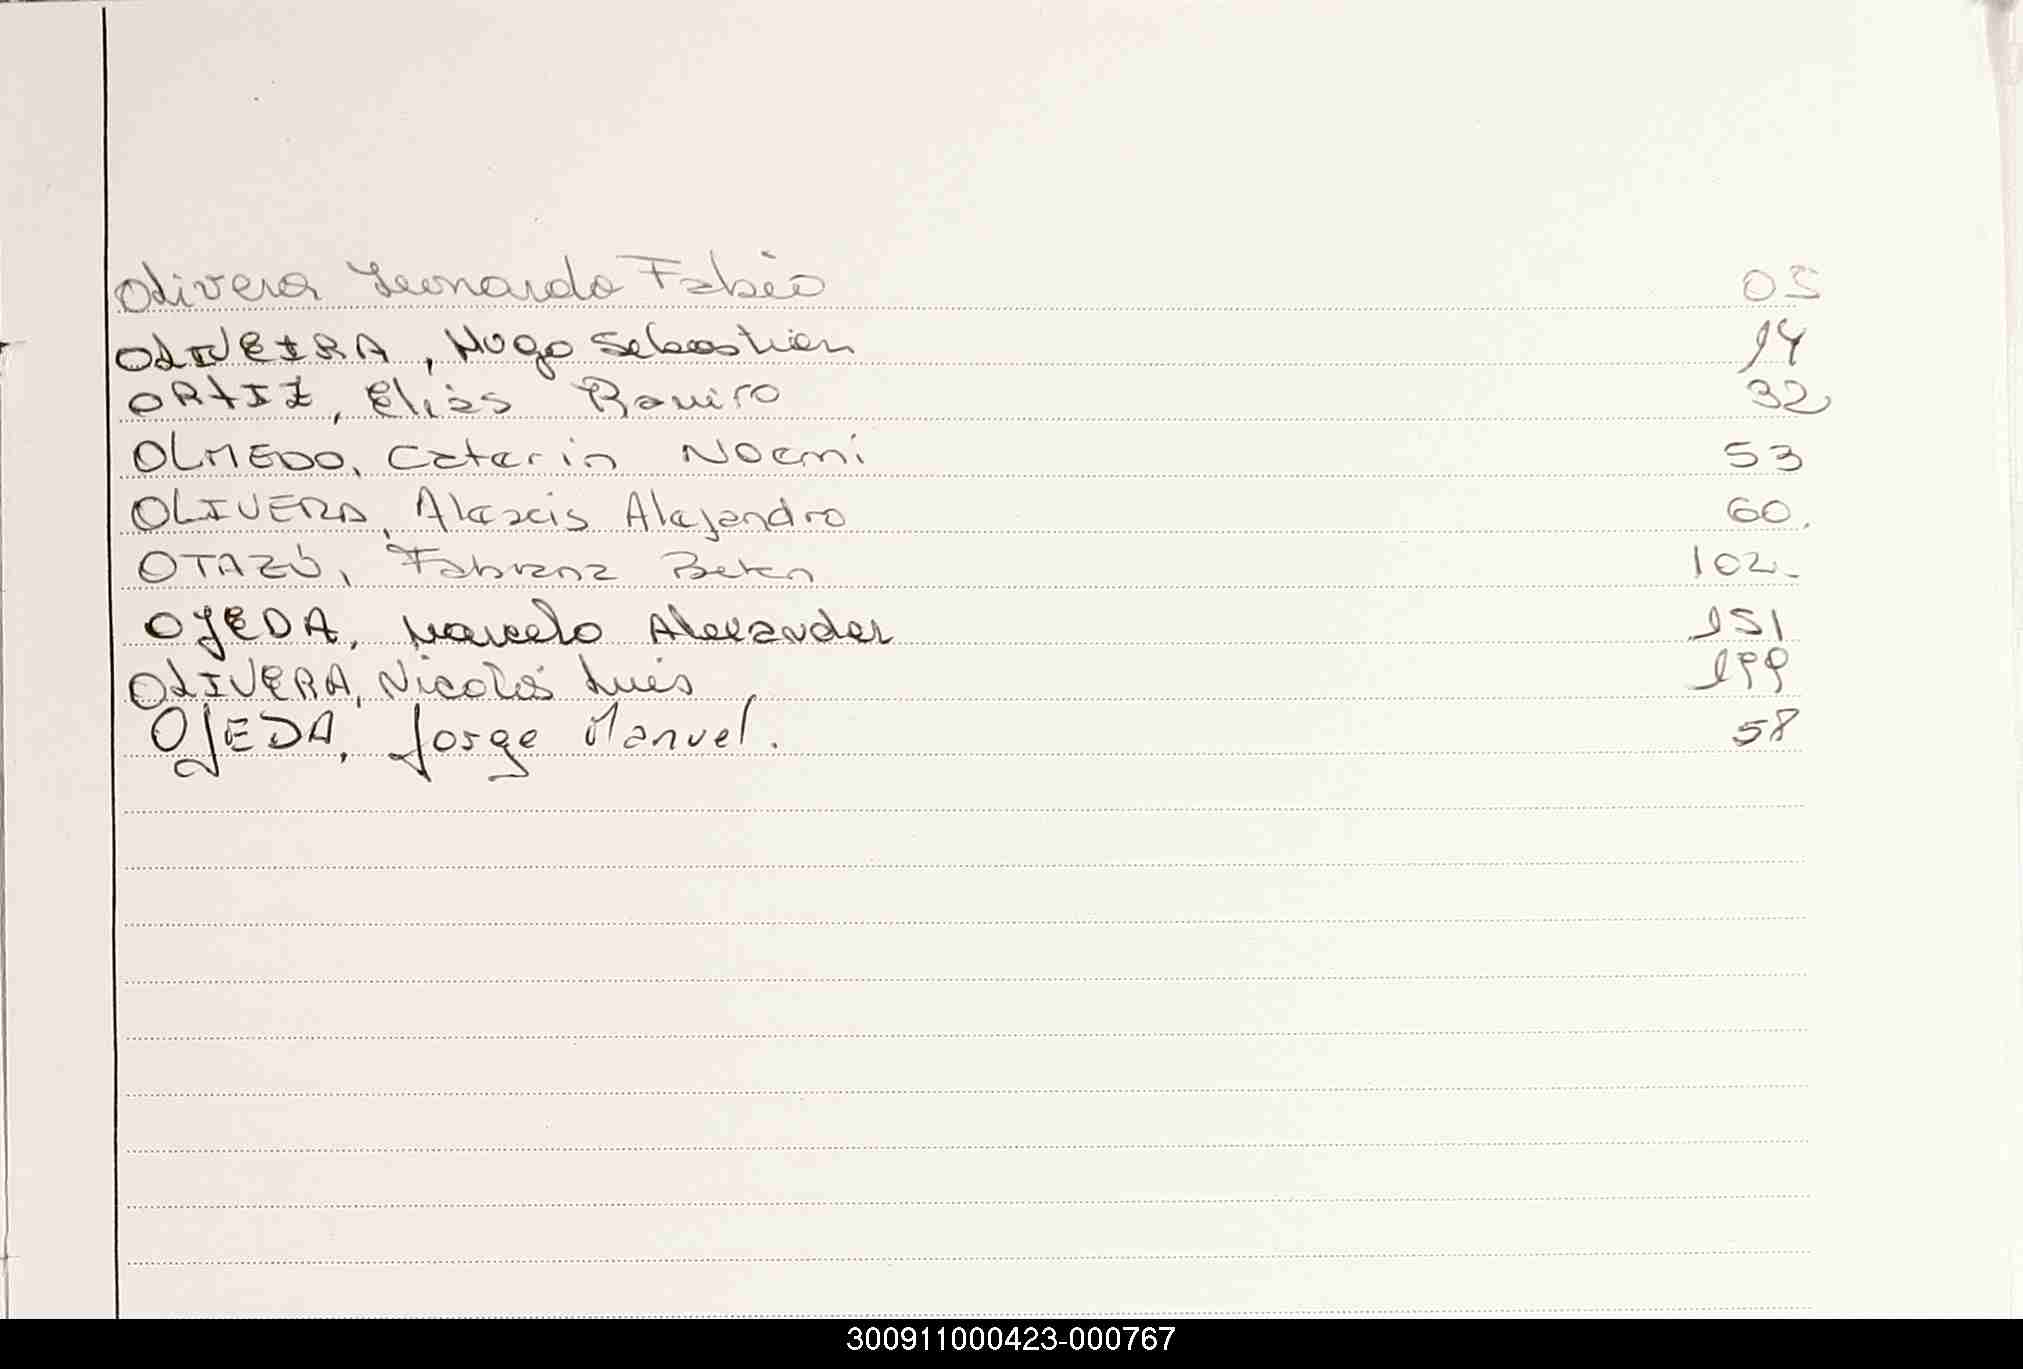 Olivera Leonardo Fabio 05
OLIVEIRA, Hugo Sebastian 14
ORTIZ, Eliàs Ramiro 32
OLMEDO, Caterin Noemi 53
OLIVERA, Alexcis Alejandro 60.
OTAZÚ, Fabiana Belen 102-
OJEDA, Marcelo Alexander 151
OLIVERA, Nicolás Luis 199
OJEDA, Jorge Manuel. 58
300911000423-000767